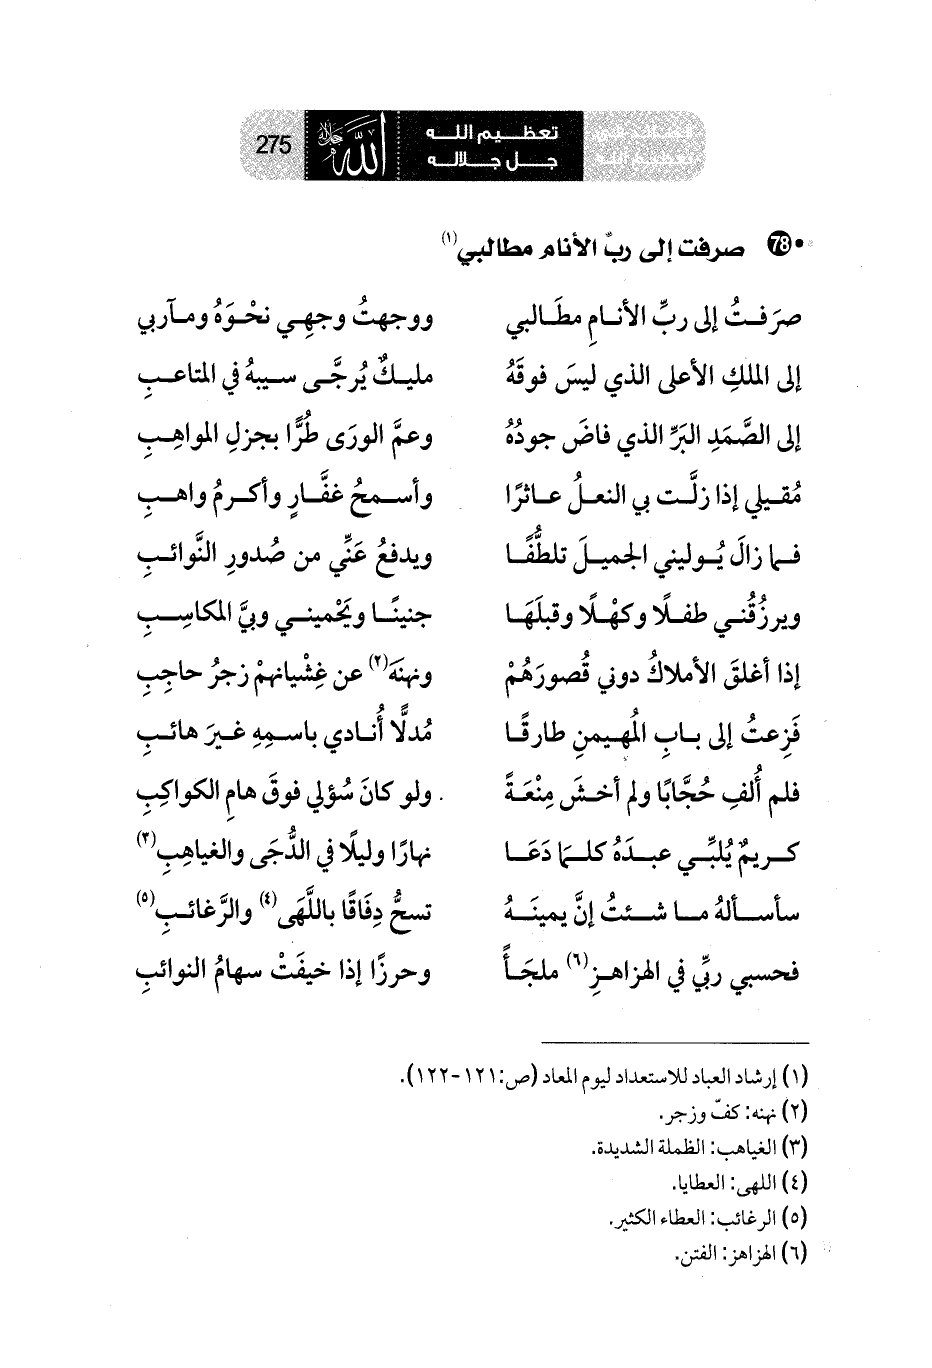 قصائد في تعظيم الله
تعظيم الله جل جلاله
الله جل جلاله
275
• 78 صرفت إلى ربّ الأنام مطالبي(١)
صرَفتُ إلى ربِّ الأنامِ مطَالبي ووجهتُ وجهِي نحْوَهُ ومآربي
إلى الملكِ الأعلى الذي ليسَ فوقَهُ مليكٌ يُرجَّى سيبهُ في المتاعبِ
إلى الصَّمَدِ البَرِّ الذي فاضَ جودُهُ وعمَّ الورَى طُرًّا بجزلِ المواهِبِ
مُقيلي إذا زلَّت بي النعلُ عاثرًا وأسمحُ غفَّارٍ وأكرمُ واهبِ
فما زالَ يُوليني الجميلَ تلطُّفًا ويدفعُ عَنِّي من صُدورِ النَّوائبِ
ويرزُقُني طفلًا وكهْلًا وقبلَهَا جنينًا ويَحْميني وبيَّ المكاسِبِ
إذا أغلقَ الأملاكُ دوني قُصورَهُمْ ونهنَه(٢) عن غِشْيانهمْ زجرُ حاجِبِ
فَزِعتُ إلى بابِ المُهيمنِ طارقًا مُدلًّا أُنادي باسمِهِ غيرَ هائبِ
فلم أُلفِ حُجَّابًا ولم أخشَ مِنْعَةً ولو كانَ سُؤلي فوقَ هامِ الكواكِبِ
كريمٌ يُلبِّي عبدَهُ كلمَا دَعَا نهارًا وليلًا في الدُّجَى والغياهِبِ(٣)
سأسألهُ ما شئتُ إنَّ يمينَهُ تسحُّ دِفَاقًا باللَّهَى(٤) والرَّغائبِ(٥)
فحسبي ربِّي في الهزاهزِ(٦) ملجَأً وحرزًا إذا خيفَتْ سهامُ النوائبِ
(١) إرشاد العباد للاستعداد ليوم المعاد (ص:١٢١-١٢٢).
(٢) نهنه: كفّ وزجر.
(٣) الغياهب: الظملة الشديدة.
(٤) اللهى: العطايا.
(٥) الرغائب: العطاء الكثير.
(٦) الهزاهز: الفتن.